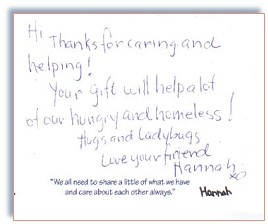 Hi Thanks for caring and
helping!
Your gift will help a lot
of our hungry and homeless!
Hugs and Ladybugs
Love your friend
Hannah
xo
"We all need to share a little of what we have
and care about each other always."
Hannah